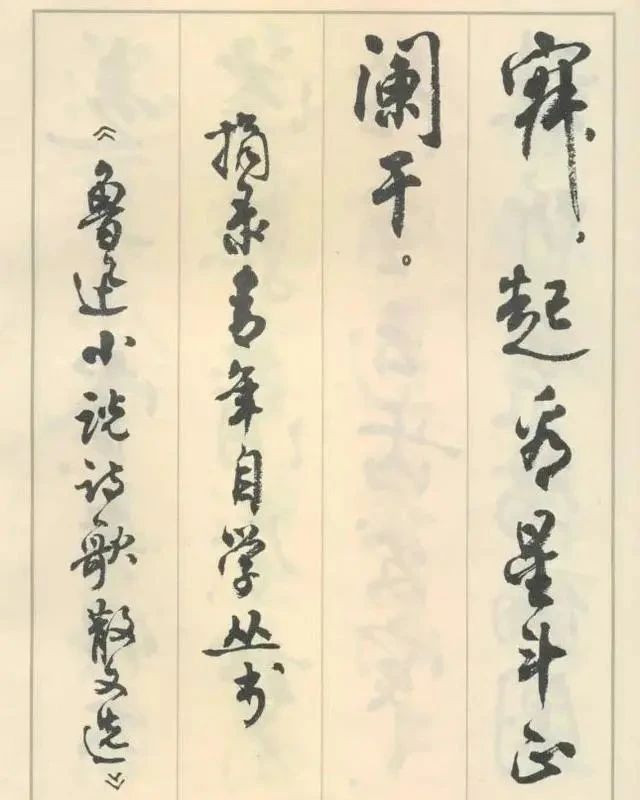 寐，起看星斗正
阑干。
摘录青年自学丛书
《鲁迅小说诗歌散文选》